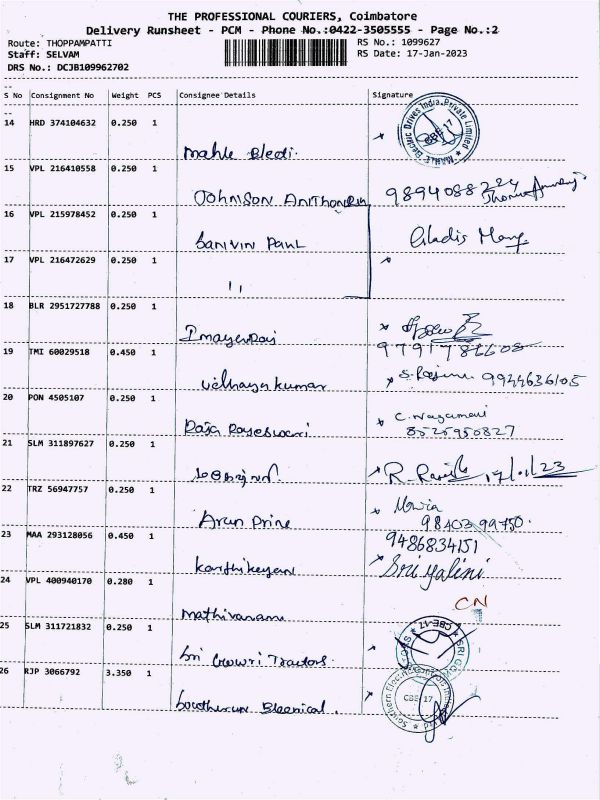 THE PROFESSIONAL COURIERS, Coimbatore
Delivery Runsheet - PCM - Phone No.:0422-3505555 - Page No.:2
Route: THOPPAMPATTI
RS No.: 1099627
Staff: SELVAM
RS Date: 17-Jan-2023
DRS No.: DCJB109962702
S No Consignment No Weight PCS Consignee Details Signature
14 HRD 374104632 0.250 1
MAHLE Electric Drives India Private Limited
CBE-17
Mahle Electi.
15 VPL 216410558 0.250 1
Johnson 9894088224
16 VPL 215978452 0.250 1
Sanivin Paul Gladis Mary
17 VPL 216472629 0.250 1
"
18 BLR 2951727788 0.250 1
Imayenraj
19 TMI 60029518 0.450 1
9791786608
Velhayerkumar 9944636105
20 PON 4505107 0.250 1
C. Nagamani
Raja Rajeswari 8525950827
21 SLM 311897627 0.250 1
R. 17/01/23
22 TRZ 56947757 0.250 1
Arun Prine 98403 99750.
23 MAA 293128056 0.450 1
9486834151
Karthikeyan Sriyalini
24 VPL 400940170 0.280 1
CN
Mathivanam
25 SLM 311721832 0.250 1
CBE-17
Sri Gowri Tractors.
26 RJP 3066792 3.350 1
CBE 17
Southern Electrical.